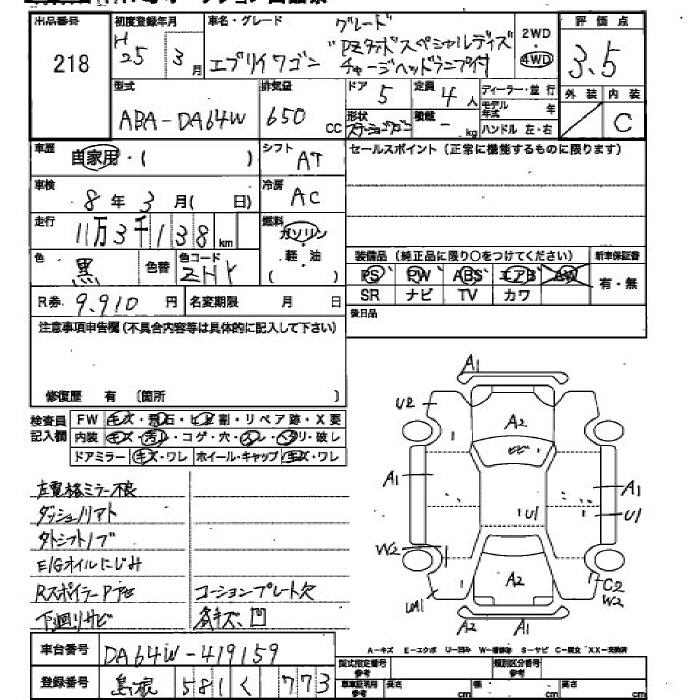 出品番号 218
初度登録年月 H25 3月
車名・グレード エブリイワゴン
グレード
"PZターボスペシャルディス
チャージヘッドランプ付
2WD
4WD
評価点 3.5
外装 内装 C
型式 ABA-DA64W
排気量 650 CC
ドア 5
定員 4人
形状 ステーションワゴン
積載 - kg
ディーラー・並行
モデル年式 年
ハンドル 左・右
車歴 自家用・( )
シフト AT
セールスポイント(正常に機能するものに限ります)
車検 8年3月( 日)
冷房 AC
走行 11万3千138km
燃料 ガソリン・軽・油 ( )
色 黒 色替
色コード ZHY
装備品(純正品に限り○をつけてください)
新車保証書 有・無
PS PW ABS エアB AW
SR ナビ TV カワ
R券 9.910円
名変期限 月 日
後日品
注意事項申告欄(不具合内容等は具体的に記入して下さい)
修復歴 有 〔箇所 〕
検査員記入欄
FW キズ・飛石・ヒビ割・リペア跡・X要
内装 キズ・汚レ・コゲ・穴・スレ・ヘタリ・破レ
ドアミラー キズ・ワレ ホイール・キャップ キズ・ワレ
左電格ミラー不良
ダッシュノリアト
外シフトノブ
E/Gオイルにじみ
Rスポイラー
下廻りサビ
コーションプレート欠
各キズ、凹
A1
U2
A2
ヒビ
A1
U1
A1
U1
W2
UA1
A2
C2
W2
A2 A1
A-キズ E-エクボ U-凹み W-補修跡 S-サビ C-腐食 XX-交換済
車台番号 DA64W-419159
登録番号 島根 581 く 773
型式指定番号 参考
類別区分番号 参考
車車証明用 参考 長さ cm 幅 cm 高さ cm